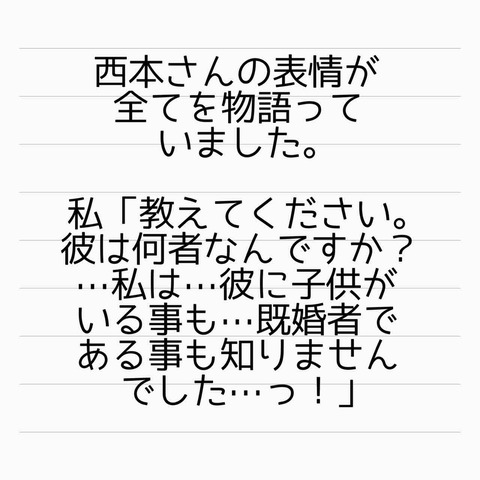 西本さんの表情が
全てを物語って
いました。
私「教えてください。
彼は何者なんですか？
…私は…彼に子供が
いる事も…既婚者で
ある事も知りません
でした…っ！」